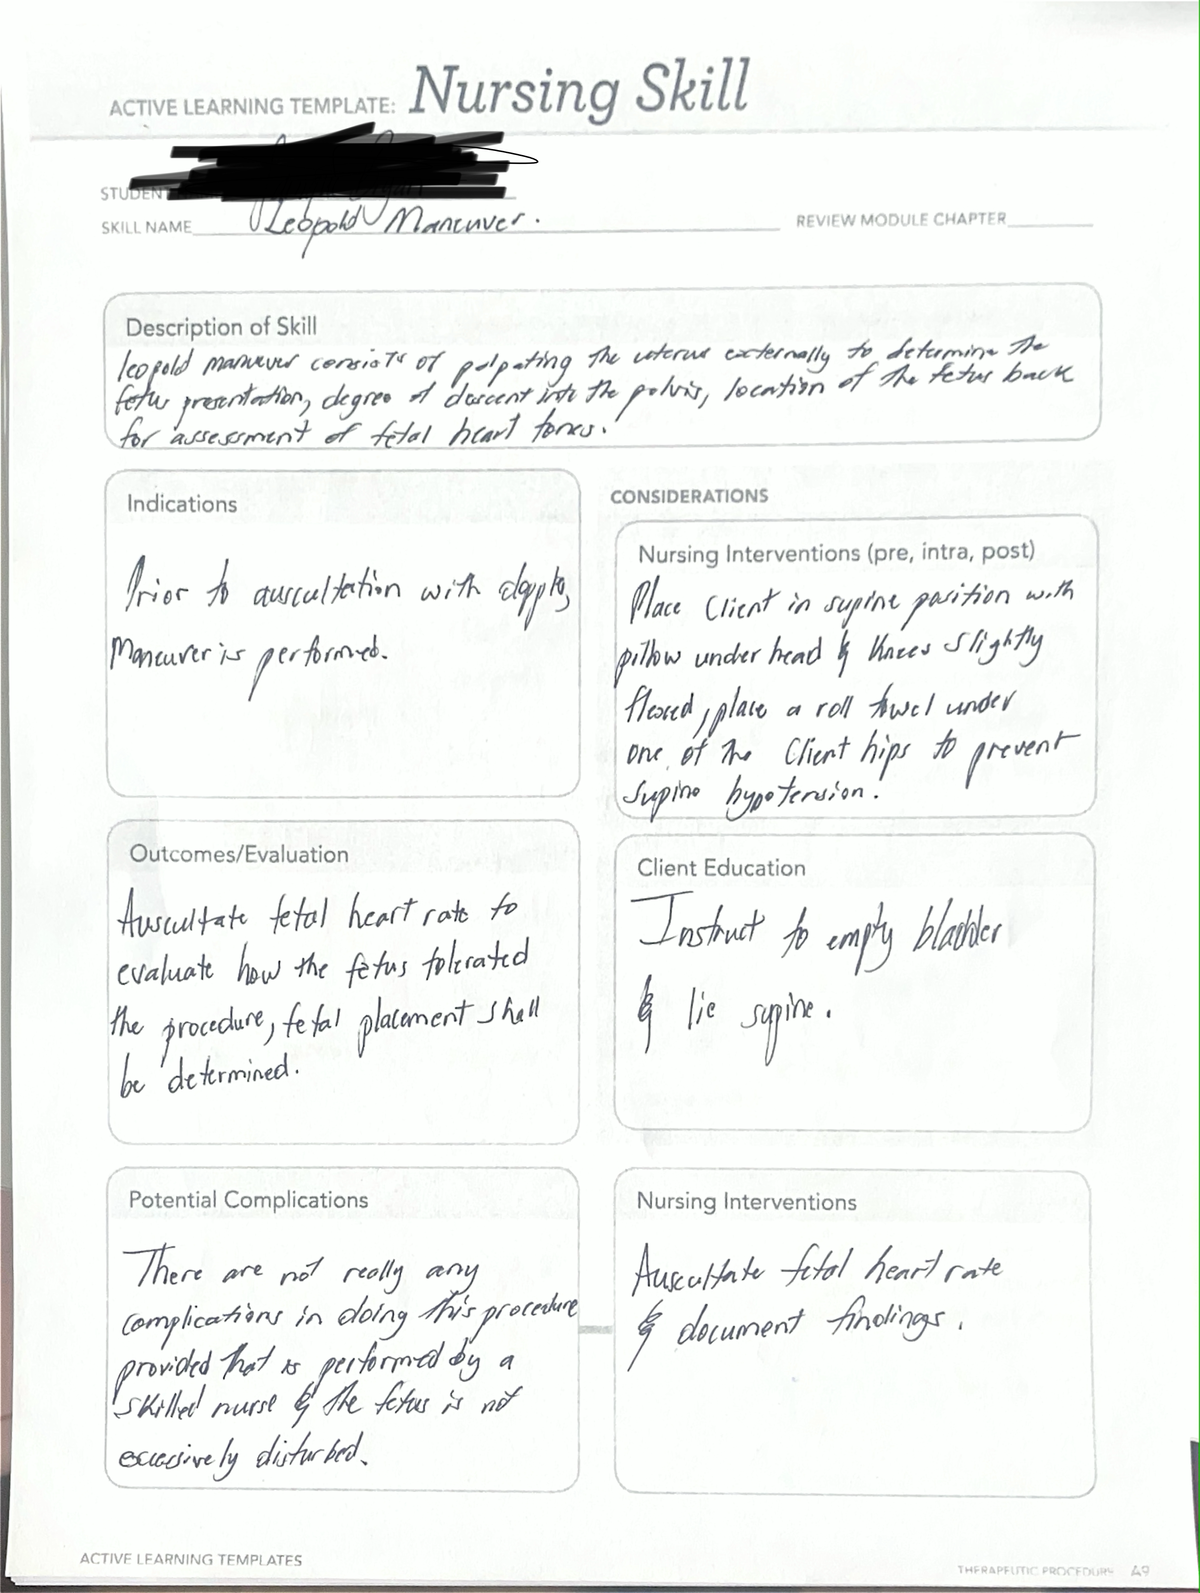 ACTIVE LEARNING TEMPLATE: Nursing Skill
STUDENT
SKILL NAME Leopold Maneuver.
REVIEW MODULE CHAPTER
Description of Skill
leopold maneuver consists of palpating the uterus externally to determine the
fetus presentation, degree of descent into the pelvis, location of the fetus back
for assessment of fetal heart tones.
Indications
Prior to auscultation with
Maneuver is performed.
CONSIDERATIONS
Nursing Interventions (pre, intra, post)
Place Client in supine position with
pillow under head & Knees slightly
flexed, place a roll towel under
one of the Client hips to prevent
supine hypotension.
Outcomes/Evaluation
Auscultate fetal heart rate to
evaluate how the fetus tolerated
the procedure, fetal placement shall
be determined.
Client Education
Instruct to empty bladder
& lie supine.
Potential Complications
There are not really any
complications in doing this procedure
provided that is performed by a
skilled nurse & the fetus is not
excessively disturbed.
Nursing Interventions
Auscultate fetal heart rate
& document findings.
ACTIVE LEARNING TEMPLATES
THERAPEUTIC PROCEDURE A9